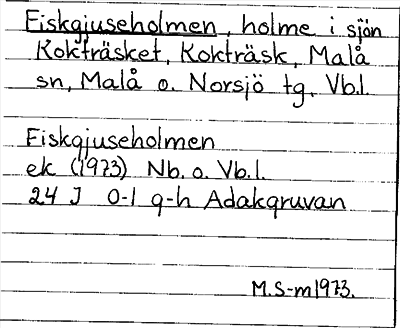 Fiskgjuseholmen, holme i sjön
Kokträsket, Kokträsk, Malå
sn, Malå o. Norsjö tg, Vb.l.
Fiskgjuseholmen
ek (1973) Nb. o. Vb.l.
24 J 0-1 g-h Adakgruvan
M.S-m 1973.